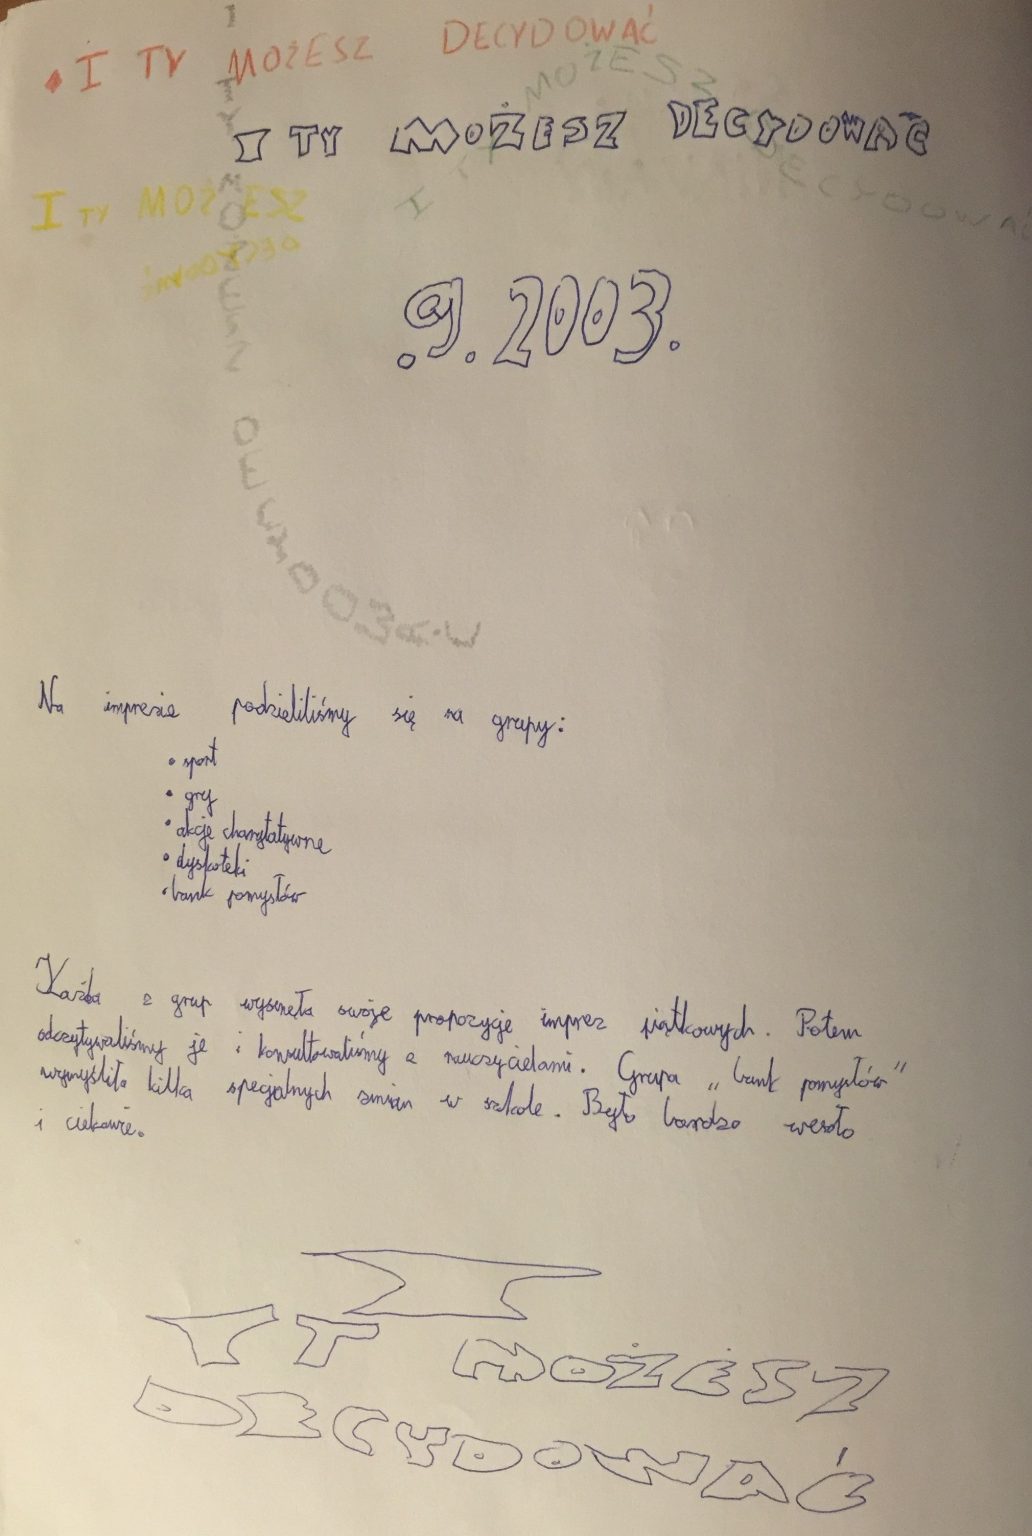 • I TY MOŻESZ DECYDOWAĆ
I TY MOŻESZ DECYDOWAĆ
I TY MOŻESZ DECYDOWAĆ
I TY MOŻESZ
DECYDOWAĆ
I TY MOŻESZ DECYDOWAĆ
.9.2003.
Na imprezie podzieliliśmy się na grupy:
• sport
• gry
• akcje charytatywne
• dyskoteki
• bank pomysłów
Każda z grup wysunęła swoje propozycje imprez piątkowych. Potem
odczytywaliśmy je i konsultowaliśmy z nauczycielami. Grupa „bank pomysłów"
wymyśliła kilka specjalnych zmian w szkole. Było bardzo wesoło
i ciekawie.
I
TY MOŻESZ
DECYDOWAĆ